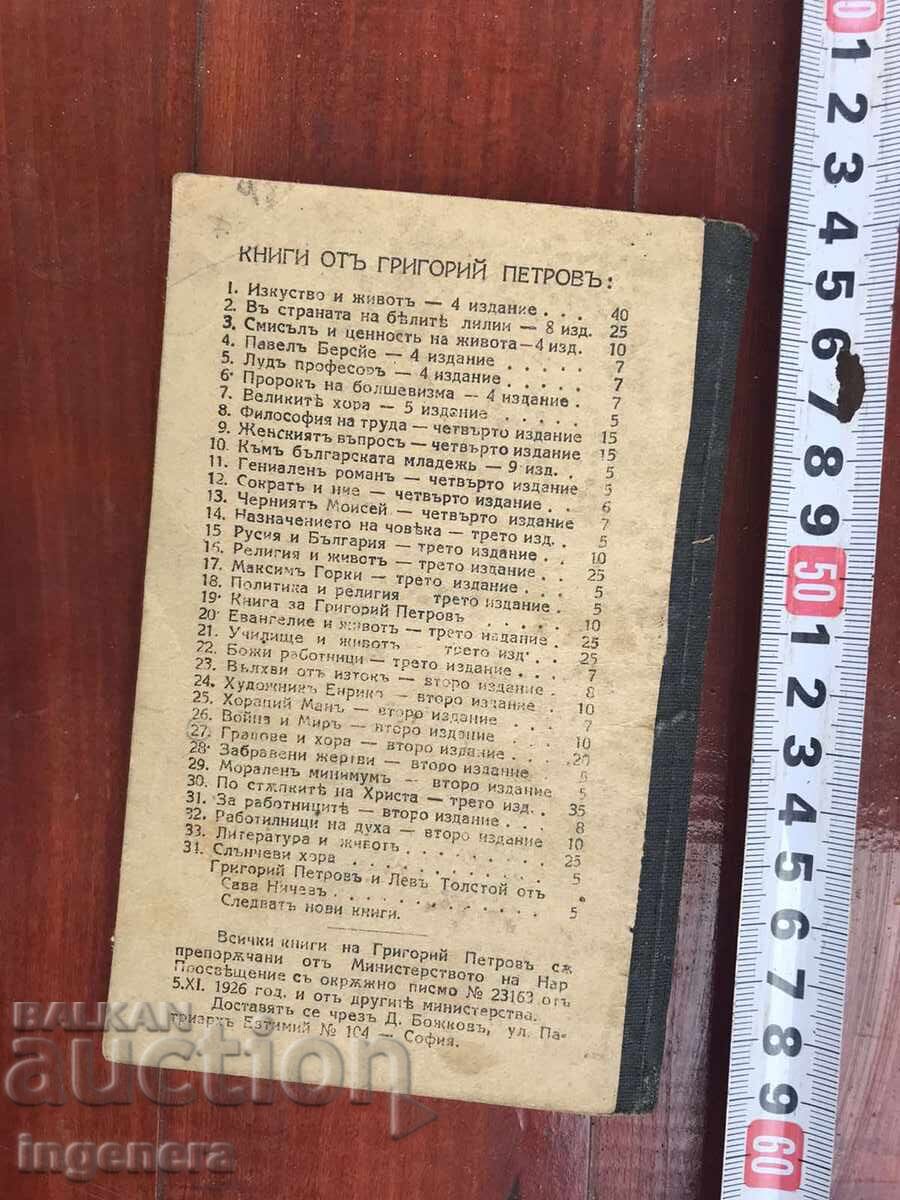 КНИГИ ОТЪ ГРИГОРИЙ ПЕТРОВЪ:
1. Изкуство и животъ — 4 издание . . . 40
2. Въ страната на бѣлитѣ лилии — 8 изд. 25
3. Смисълъ и ценность на живота — 4 изд. 10
4. Павелъ Берсйе — 4 издание . . . . . 7
5. Лудъ професоръ — 4 издание . . . . 7
6. Пророкъ на болшевизма — 4 издание . 7
7. Великитѣ хора — 5 издание . . . . . 5
8. Философия на труда — четвърто издание 15
9. Женскиятъ въпросъ — четвърто издание 15
10. Къмъ българската младежь — 9 изд. . 5
11. Гениаленъ романъ — четвърто издание 5
12. Сократъ и ние — четвърто издание . . 6
13. Черниятъ Моисей — четвърто издание 7
14. Назначението на човѣка — трето изд. . 5
15 Русия и България — трето издание . . 10
16. Религия и животъ — трето издание . . 25
17. Максимъ Горки — трето издание . . 5
18. Политика и религия трето издание . 5
19. Книга за Григорий Петровъ . . . . . 10
20. Евангелие и животъ — трето издание . 25
21. Училище и животъ трето изд. . . 25
22. Божи работници — трето издание . . 7
23. Вълхви отъ изтокъ — второ издание . 8
24. Художникъ Енрико — второ издание . 10
25. Хораций Манъ — второ издание . 7
26. Война и Миръ — второ издание . 10
27. Градове и хора — второ издание . . 20
28. Забравени жертви — второ издание . 6
29. Мораленъ минимумъ — второ издание 5
30. По стѫпкитѣ на Христа — трето изд. . 35
31. За работницитѣ — второ издание . . . 8
32. Работилници на духа — второ издание 10
33. Литература и животъ . . . . . . . . 25
31. Слънчеви хора . . . . . . . . . . 5
Григорий Петровъ и Левъ Толстой отъ
Сава Ничевъ . . . . . . . . . . 5
Следватъ нови книги.
Всички книги на Григорий Петровъ сѫ
препорѫчани отъ Министерството на Нар
Просвѣщение съ окрѫжно писмо № 23163 отъ
5.XI. 1926 год. и отъ другитѣ министерства.
Доставятъ се чрезъ Д. Божковъ, ул. Па-
триархъ Евтимий № 104 — София.
0
1
2
3
4
5
6
7
8
9
50
1
2
3
4
5
6
7
8
9
60
BALKAN
auction
ingenera